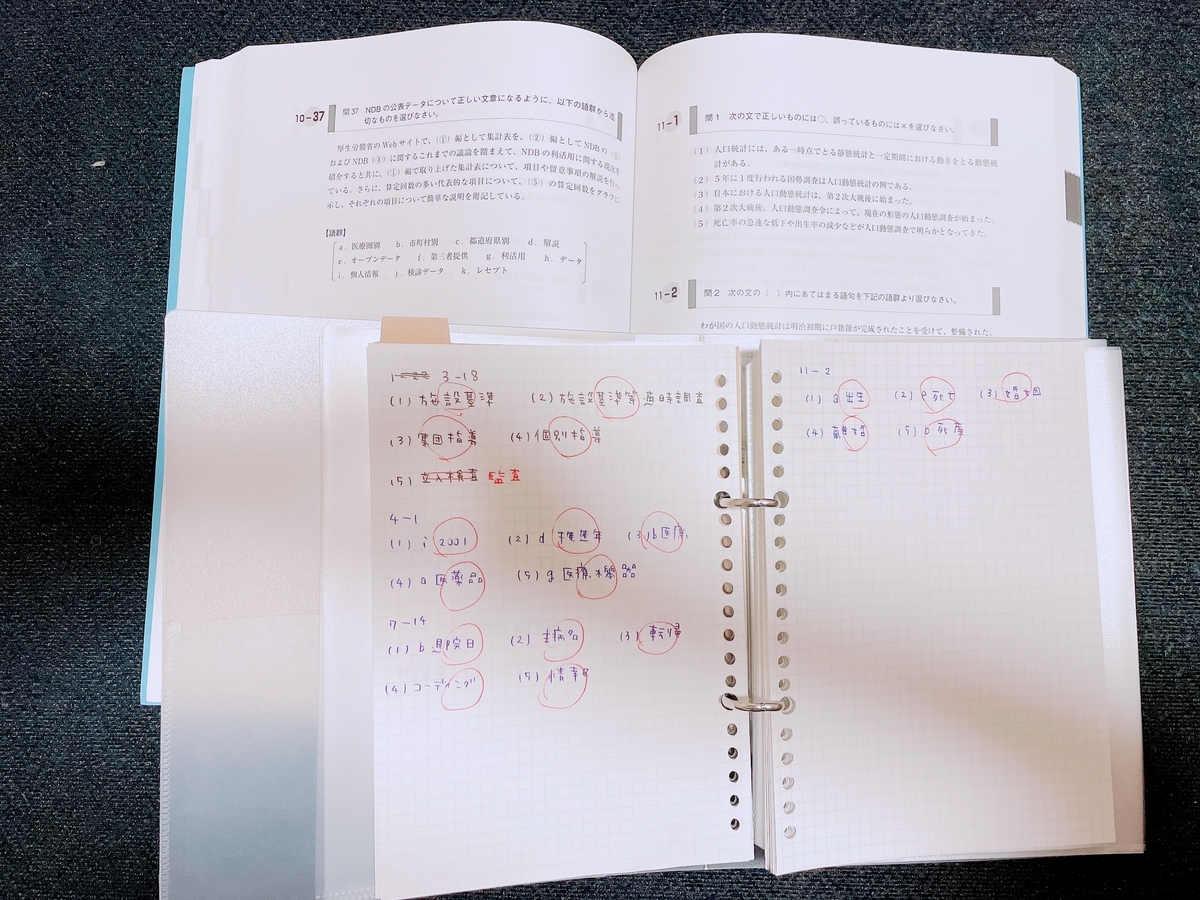 10-37
問37 NDBの公表データについて正しい文章になるように、以下の語群から適
切なものを選びなさい。
厚生労働省のWebサイトで、(①)編として集計表を、(②)編としてNDBの(③)
およびNDB(④)に関するこれまでの議論を踏まえて、NDBの利活用に関する現況を
紹介すると共に、(①)編で取り上げた集計表について、項目や留意事項の解説を行っ
ている。さらに、算定回数の多い代表的な項目について、(⑤)の算定回数をグラフに
示し、それぞれの項目について簡単な説明を附記している。
【語群】
a.医療圏別 b.市町村別 c.都道府県別 d.解説
e.オープンデータ f.第三者提供 g.利活用 h.データ
i.個人情報 j.検診データ k.レセプト
11-1
問1 次の文で正しいものには○、誤っているものには×を選びなさい。
(1) 人口統計には、ある一時点でとる静態統計と一定期間における動きをとる動態統
計がある。
(2) 5年に1度行われる国勢調査は人口動態統計の例である。
(3) 日本における人口動態統計は、第2次大戦後に始まった。
(4) 第2次大戦後、人口動態調査令によって、現在の形態の人口動態調査が始まった。
(5) 死亡率の急速な低下や出生率の減少などが人口動態調査で明らかとなってきた。
11-2
問2 次の文の( )内にあてはまる語句を下記の語群より選びなさい。
わが国の人口動態統計は明治初期に戸籍簿が完成されたことを受けて、整備された。
3-18
(1) 施設基準 (2) 施設基準等適時調査
(3) 集団指導 (4) 個別指導
(5) 立入検査 監査
4-1
(1) i 2001 (2) d 推進年 (3) b 医療
(4) a 医薬品 (5) g 医療機器
7-14
(1) b 退院日 (2) 主病名 (3) 転帰
(4) コーディング (5) 情報
11-2
(1) a 出生 (2) e 死亡 (3) 婚姻
(4) 離婚 (5) b 死産